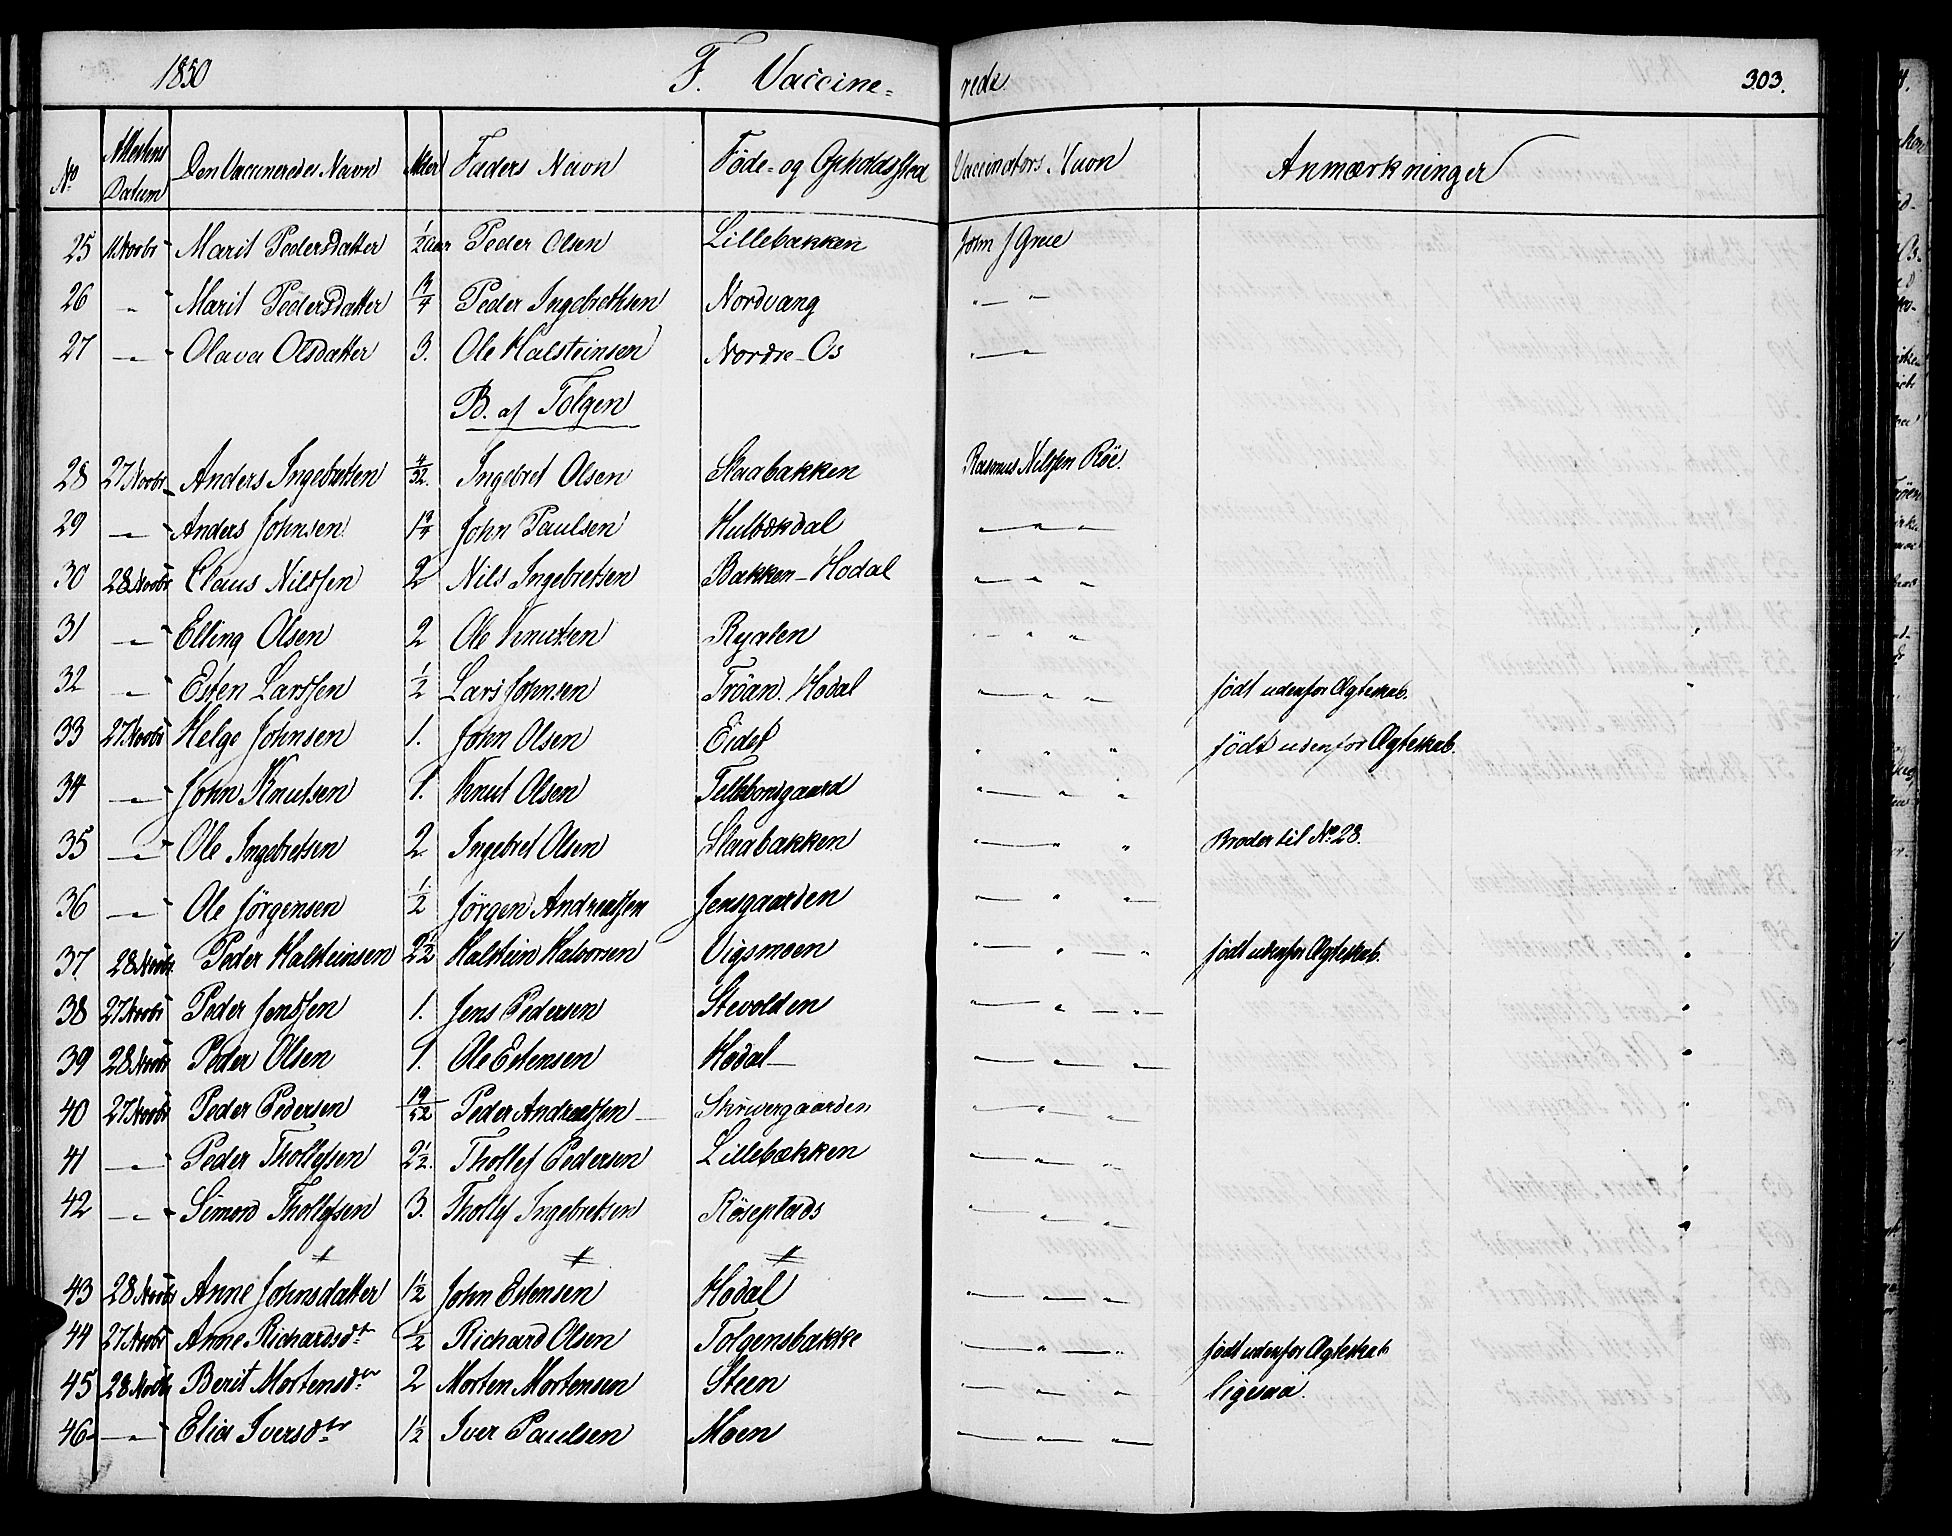 1850 F. Vaccine- rede. 303.
No Attestens Datum Den Vaccineredes Navn Alder Faders Navn Føde- og Opholdssted Vaccinators Navn Anmærkninger
25 Marit Pedersdatter 1/2 Aar Peder Olsen Lillebakken John J Grue
26 " Marit Pedersdatter 3/4 Peder Ingebrethsen Nordvang " "
27 " Olava Olsdatter 3. Ole Halsteinsen Nordre-Os "
B. af Tolgen
28 27 Novbr Anders Ingebretsen Ingebret Olsen Staabakken Rasmus Nilssen Röe.
29 " Anders Johnsen 1 3/4 John Paulsen Hulbækdal " " "
30 28 Novbr Claus Nilssen 2 Nils Ingebretsen Bakken-Hodal " " "
31 " Elling Olsen 2 Ole Knutsen Ryalen " " "
32 " Esten Larssen 1/2 Lars Johnsen Tröan. Hodal " " " født udenfor Ægteskab.
33 27 Novbr Helge Johnsen 1. John Olsen Eidet " " " født udenfor Ægteskab.
34 " John Knutsen 1. Knut Olsen " " "
35 " Ole Ingebretsen 2. Ingebret Olsen Staabakken " " " Broder til No 28.
36 " Ole Jörgensen 1/2 Jörgen Andreassen Jensgaarden " " "
37 28 Novbr Peder Halsteinsen 2 1/2 Halstein Halvorsen Vigsmoen " " " født udenfor Ægteskab.
38 27 Novbr Peder Jenssen 1. Jens Pedersen Stevolden " " "
39 28 Novbr Peder Olsen 1. Ole Estensen Hodal " " "
40 27 Novbr Peder Pedersen 19/52 Peder Andreassen Skrivergaarden " " "
41 " Peder Thollefsen 2 1/2. Thollef Pedersen Lillebækken " " "
42 " Simon Thollefsen 3. Thollef Ingebretsen Röseplads " " "
43 28 Novbr Anne Johnsdatter 1 1/2 John Estensen Hodal " " "
44 27 Novbr Anne Richardsdr 1/2 Richard Olsen Tolgensbakke " " født udenfor Ægteskab
45 28 Novbr Berit Mortensdr 2 Morten Mortensen Steen " " " ligesaa.
46 " Elia Iversdtr 1 1/2 Iver Paulsen Moen " " "